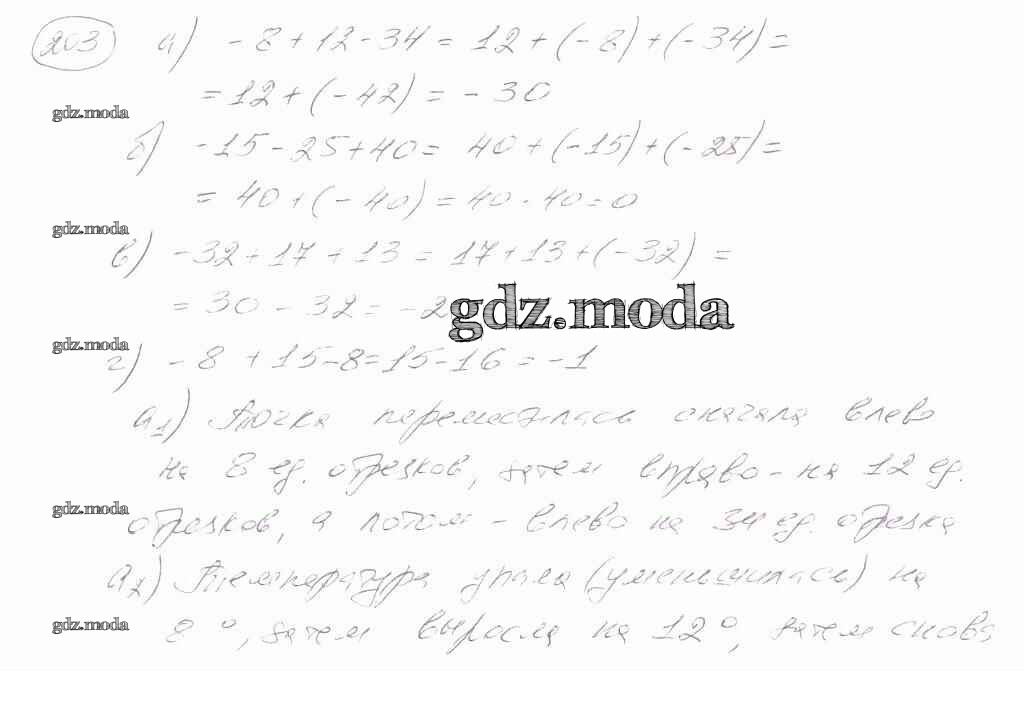 203 а) -8+12-34 = 12+(-8)+(-34)=
=12+(-42) = -30
gdz.moda
б) -15-25+40= 40+(-15)+(-25)=
= 40+(-40)=40-40=0
gdz.moda
в) -32+17+13 = 17+13+(-32) =
= 30-32= -2
gdz.moda
gdz.moda
г) -8+15-8=15-16=-1
а1) Точка переместилась сначала влево
на 8 ед. отрезков, затем вправо - на 12 ед.
gdz.moda
отрезков, а потом - влево на 34 ед. отрезка
а2) Температура упала (уменьшилась) на
gdz.moda
8°, затем выросла на 12°, затем снова